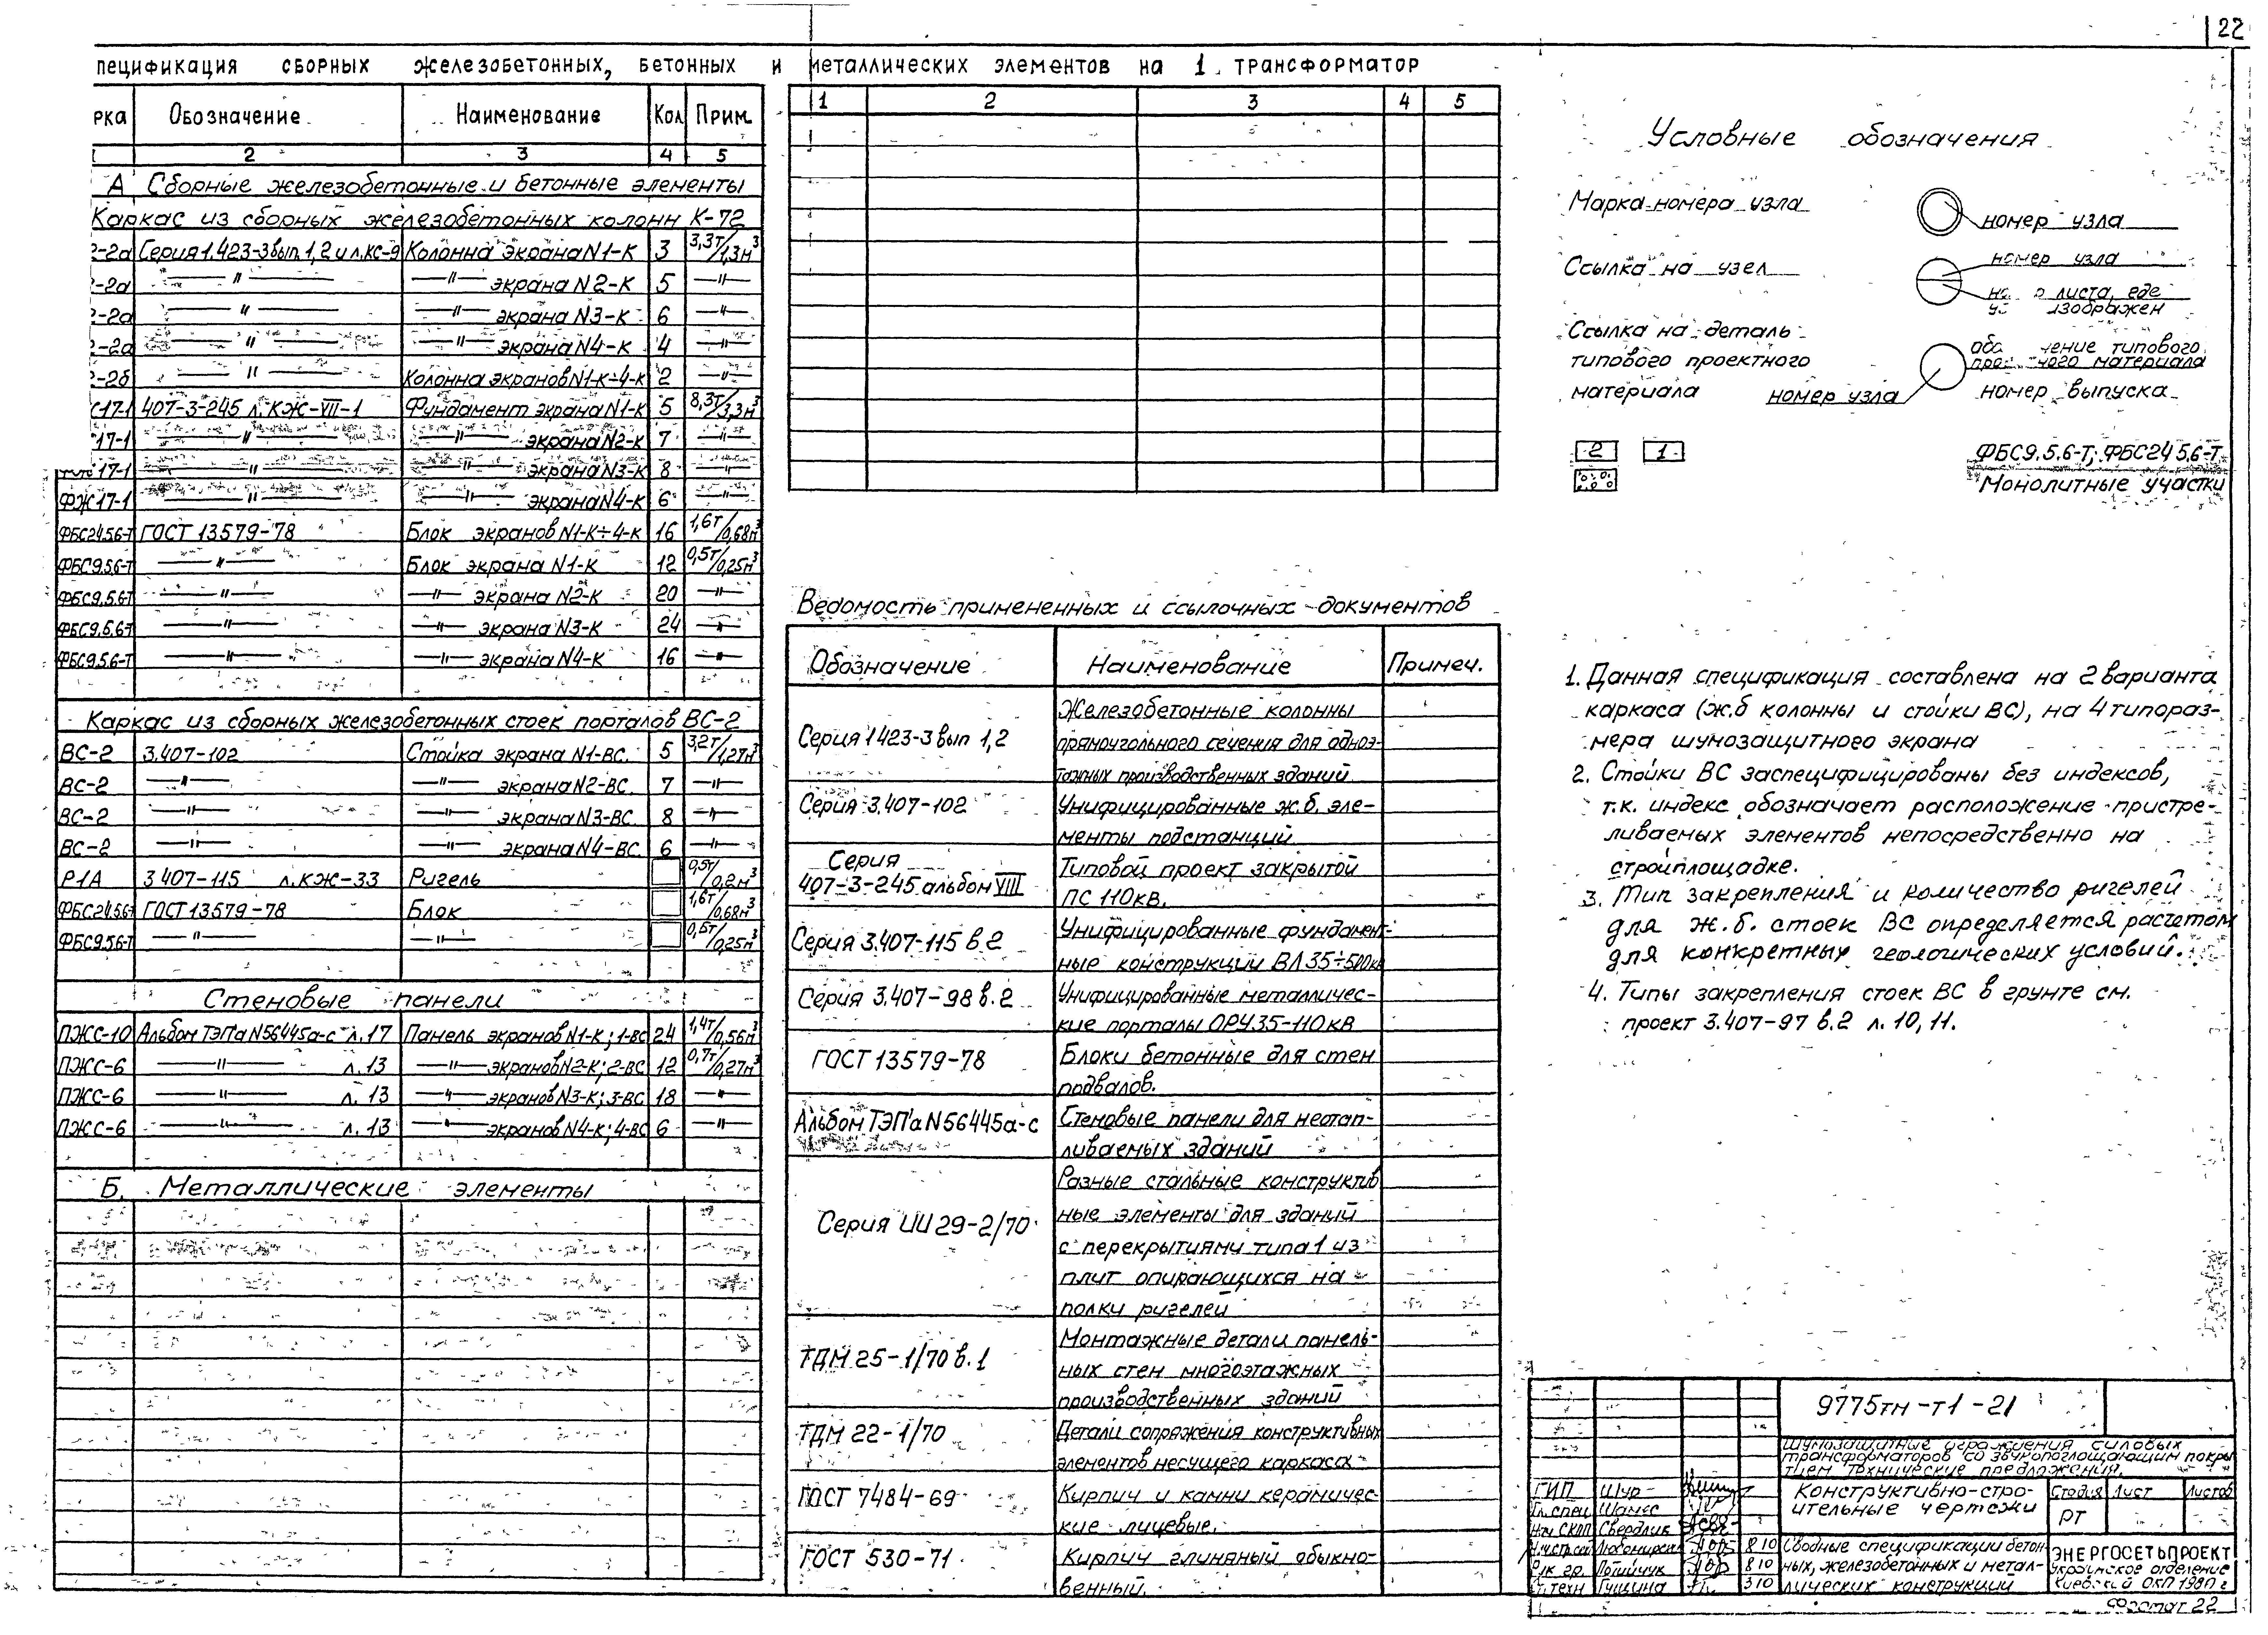 22
пецификация сборных железобетонных, бетонных и металлических элементов на 1 трансформатор
рка Обозначение Наименование Кол Прим.
2 3 4 5
А Сборные железобетонные и бетонные элементы
Каркас из сборных железобетонных колонн К-72
2-2а Серия 1.423-3 вып. 1,2 и л.КС-9 Колонна экрана N1-К 3 3,3т/1,3м³
2-2а —"— —"— экрана N2-К 5 —"—
2-2а —"— —"— экрана N3-К 6 —"—
2-2а —"— —"— экрана N4-К 4 —"—
2-2б —"— Колонна экранов N1-К÷4-К 2 —"—
17-1 407-3-245 л.КЖ-VII-1 Фундамент экрана N1-К 5 8,3т/3,3м³
17-1 —"— —"— экрана N2-К 7 —"—
17-1 —"— —"— экрана N3-К 8 —"—
ФЖ17-1 —"— —"— экрана N4-К 6 —"—
ФБС24.5.6-Т ГОСТ 13579-78 Блок экранов N1-К÷4-К 16 1,6т/0,68м³
ФБС9.5.6-Т —"— Блок экрана N1-К 12 0,5т/0,25м³
ФБС9.5.6-Т —"— —"— экрана N2-К 20 —"—
ФБС9.5.6-Т —"— —"— экрана N3-К 24 —"—
ФБС9.5.6-Т —"— —"— экрана N4-К 16 —"—
Каркас из сборных железобетонных стоек порталов ВС-2
ВС-2 3.407-102 Стойка экрана N1-ВС. 5 3,2т/1,27м³
ВС-2 —"— —"— экрана N2-ВС. 7 —"—
ВС-2 —"— —"— экрана N3-ВС. 8 —"—
ВС-2 —"— —"— экрана N4-ВС. 6 —"—
Р1А 3 407-115 л.КЖ-33 Ригель 0,5т/0,2м³
ФБС24.5.6-Т ГОСТ 13579-78 Блок 1,6т/0,68м³
ФБС9.5.6-Т —"— —"— 0,5т/0,25м³
Стеновые панели
ПЖС-10 Альбом ТЭПа N56445а-с л.17 Панель экранов N1-К; 1-ВС 24 1,4т/0,56м³
ПЖС-6 —"— л.13 —"— экранов N2-К; 2-ВС 12 0,7т/0,27м³
ПЖС-6 —"— л.13 —"— экранов N3-К; 3-ВС 18 —"—
ПЖС-6 —"— л.13 —"— экранов N4-К; 4-ВС 6 —"—
Б. Металлические элементы
1 2 3 4 5
Ведомость примененных и ссылочных документов
Обозначение Наименование Примеч.
Серия 1 423-3 вып 1,2 Железобетонные колонны
прямоугольного сечения для одноэ-
тажных производственных зданий
Серия 3.407-102 Унифицированные ж.б. эле-
менты подстанций
Серия
407-3-245 альбом VIII Типовой проект закрытой
ПС 110кв.
Серия 3.407-115 в.2 Унифицированные фундамент-
ные конструкции ВЛ 35÷500кв
Серия 3.407-98 в.2 Унифицированные металличес-
кие порталы ОРУ 35-110 кв
ГОСТ 13579-78 Блоки бетонные для стен
подвалов.
Альбом ТЭПа N56445а-с Стеновые панели для неотап-
ливаемых зданий
Серия ИИ 29-2/70 Разные стальные конструктив
ные элементы для зданий
с перекрытиями типа 1 из
плит опирающихся на
полки ригелей
ТДМ 25-1/70 в.1 Монтажные детали панель-
ных стен многоэтажных
производственных зданий
ТДМ 22-1/70 Детали сопряжения конструктивных
элементов несущего каркаса
ГОСТ 7484-69 Кирпич и камни керамичес-
кие лицевые.
ГОСТ 530-71 Кирпич глиняный обыкно-
венный.
Условные обозначения
Марка номера узла номер узла
Ссылка на узел номер узла
листа, где
изображен
Ссылка на деталь
типового проектного
материала номер узла
типового
материала
номер выпуска
2 1 ФБС9.5.6-Т; ФБС24 5.6-Т
Монолитные участки
1. Данная спецификация составлена на 2 варианта
каркаса (ж.б колонны и стойки ВС), на 4 типораз-
мера шумозащитного экрана
2. Стойки ВС заспецифицированы без индексов,
т.к. индекс обозначает расположение пристре-
ливаемых элементов непосредственно на
стройплощадке.
3. Тип закрепления и количество ригелей
для ж.б. стоек ВС определяется расчетом
для конкретных геологических условий.
4. Типы закрепления стоек ВС в грунте см.
проект 3.407-97 в.2 л. 10, 11.
9775тм-т1-21
Шумозащитные ограждения силовых
трансформаторов со звукопоглощающим покры
тием Технические предложения.
Конструктивно-стро-
ительные чертежи
Стадия Лист Листов
РТ
ГИП Шур
Гл.спец
Нач СКПП Свердлик
8 10
Рук гр. 8 10
Ст.техн Гущина 8 10
Сводные спецификации бетон-
ных, железобетонных и метал-
лических конструкций
ЭНЕРГОСЕТЬПРОЕКТ
Украинское отделение
Киевский ОКП 1980 г
Формат 22